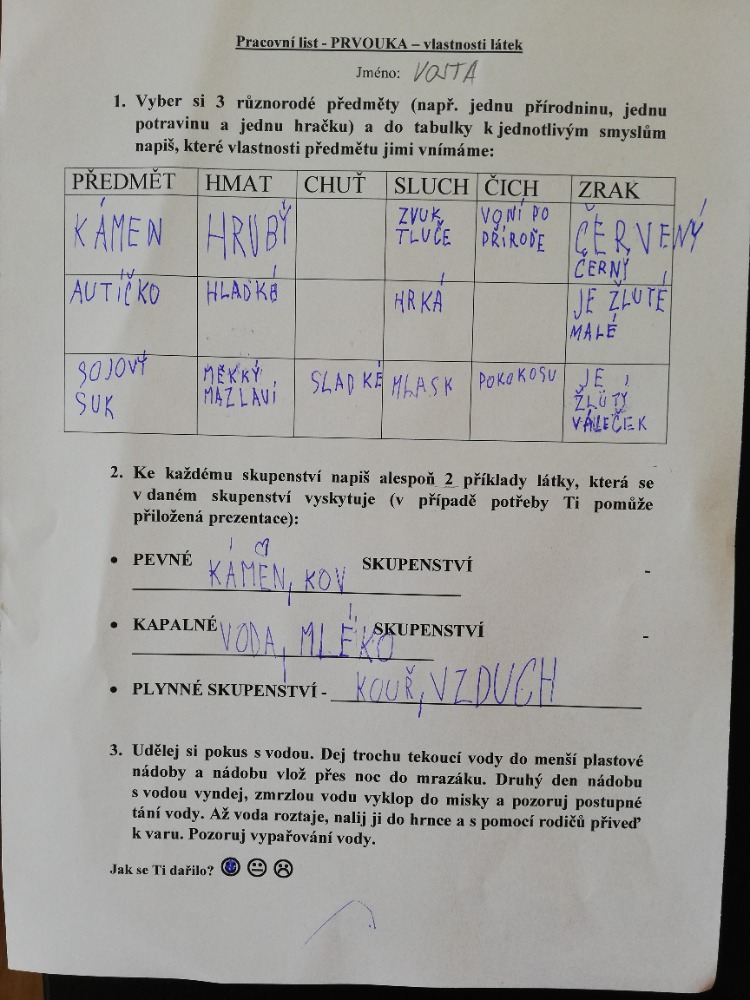 Pracovní list - PRVOUKA – vlastnosti látek
Jméno: VOJTA
1. Vyber si 3 různorodé předměty (např. jednu přírodninu, jednu
potravinu a jednu hračku) a do tabulky k jednotlivým smyslům
napiš, které vlastnosti předmětu jimi vnímáme:
PŘEDMĚT HMAT CHUŤ SLUCH ČICH ZRAK
KÁMEN HRUBÝ ZVUK VONÍ PO ČERVENÝ
TLUČE PŘÍRODĚ
ČERNÝ
AUTÍČKO HLADKÉ HRKÁ JE ŽLUTÉ
MALÉ
SOJOVÝ MĚKKÝ SLADKÉ MLASK POKOKOSU JE
SUK MAZLAVÍ ŽLUTÝ
VÁLEČEK
2. Ke každému skupenství napiš alespoň 2 příklady látky, která se
v daném skupenství vyskytuje (v případě potřeby Ti pomůže
přiložená prezentace):
• PEVNÉ SKUPENSTVÍ -
KÁMEN, KOV
• KAPALNÉ SKUPENSTVÍ -
VODA, MLÉKO
• PLYNNÉ SKUPENSTVÍ - KOUŘ, VZDUCH
3. Udělej si pokus s vodou. Dej trochu tekoucí vody do menší plastové
nádoby a nádobu vlož přes noc do mrazáku. Druhý den nádobu
s vodou vyndej, zmrzlou vodu vyklop do misky a pozoruj postupné
tání vody. Až voda roztaje, nalij ji do hrnce a s pomocí rodičů přiveď
k varu. Pozoruj vypařování vody.
Jak se Ti dařilo?